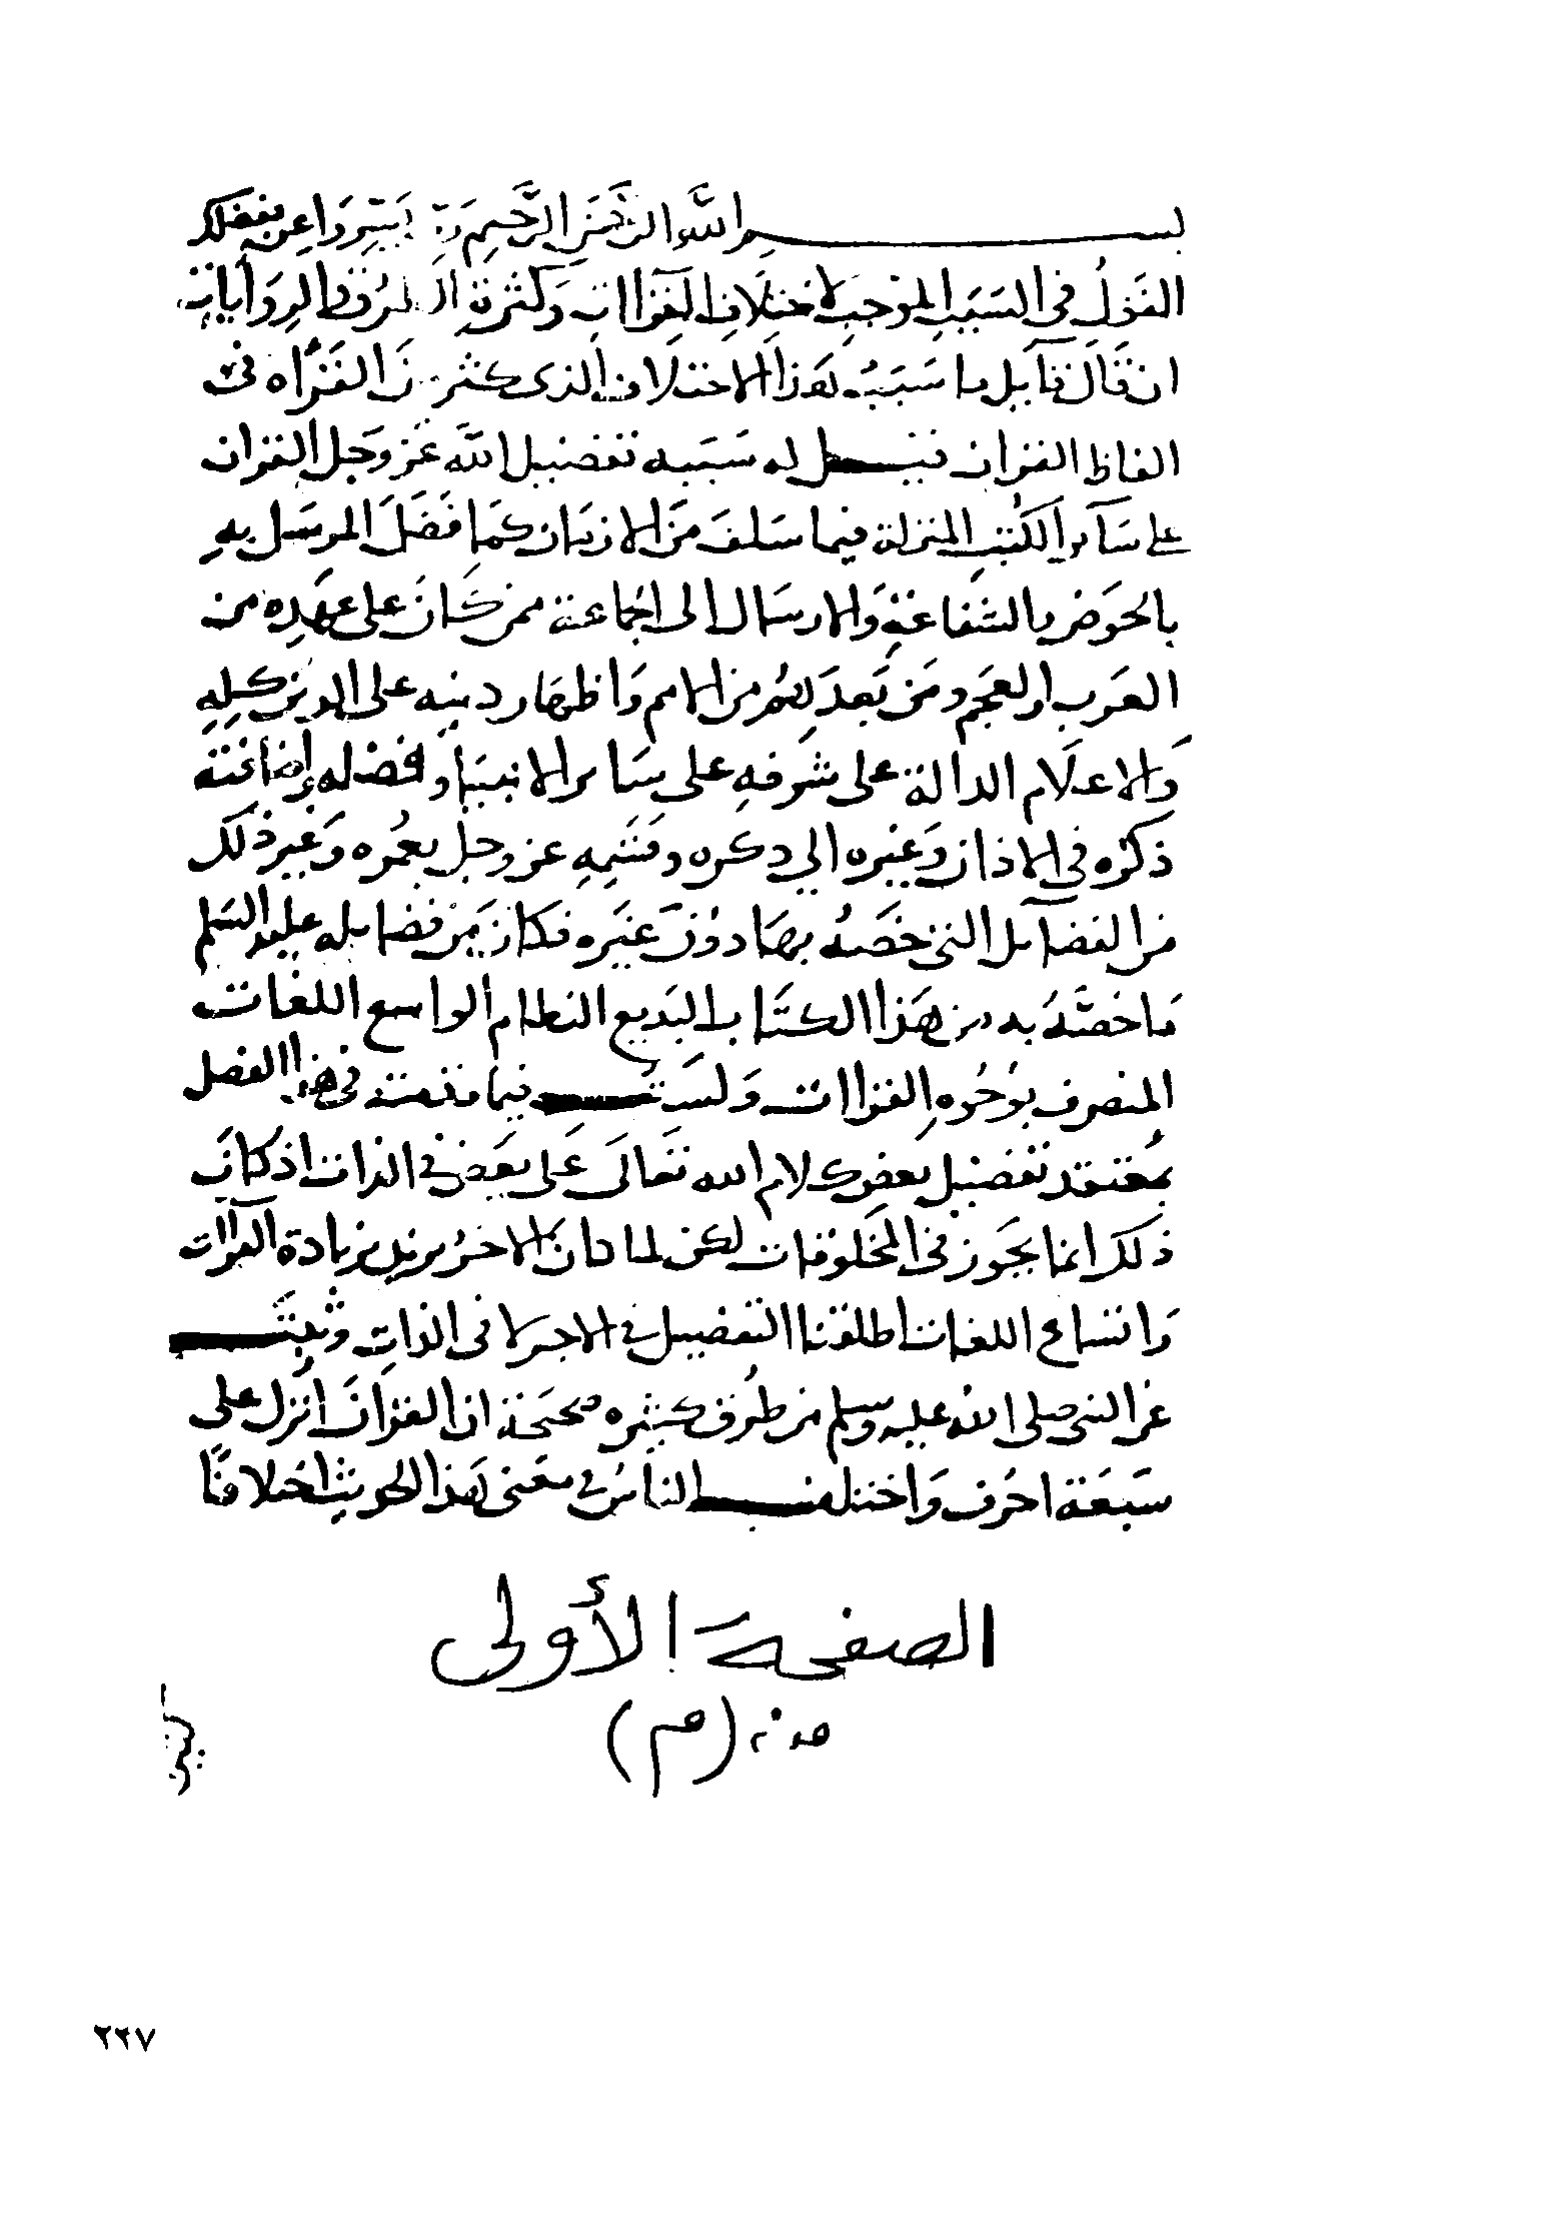 بسم الله الرحمن الرحيم رب يسر واعن بفضلك
القول في السبب الموجب لاختلاف القراات وكثرة الطرق والروايات
ان قال قآيل ما سبب هذا الاختلاف الذى كثر بَن القُرَّاه فى
الفاظ القران فقيل له سَبَبه تفضيل الله عَز وجل القران
على سَآئر الكُتب المنزلة فيما سَلفَ مَن الازمَان كمَا فَضلَ المرسَل بهِ
بالحَوَض والشفاعة وَالارسَال الى الجماعة ممن كانَ على عهدِه من
العَرب والعجم ومَن بَعدَهُم من الامم وَاظهَار دينه على الدين كلهِ
وَالاعلَام الدالة على شرفهِ على سَائر الانبيَا وفضله واضافته
ذكرُه في الاذان وَغيره الي دكره وقسَمِهِ عز وجل بعُمره وَغير ذلك
من الفضآيل التى خصَهُ بهَا دوُنَ غيَره فكان مَن فضايله عليه السلم
مَا خصَّهُ به من هَذا الكتَاب البَديع النظام الواسع اللغات
المتصرف بوُجُوهِ القراات وَلستُ فيما قدمته في هذا الفصل
بمُعتقد تفضيل بعض كلام الله تعَالَى عَلى بعَض فى الذات اذ كانَ
ذلك انما يجَوز فى المخلوُقات لكن لما كان الاجرُ يزيد بزيادة القراات
وَاتساع اللغات اطلقنا التفضيل في الاجر لا فى الذاتِ وثبتَ
عن النبى صلى الله عليه وسلم من طُرق كثيره صحيَحة ان القرانَ انزل على
سبَعَة احرُف وَاختلف الناسُ في معَنى هَذا الحديث اختلافًا
الصفحة الأولى
من (م)
كثير
٢٢٧